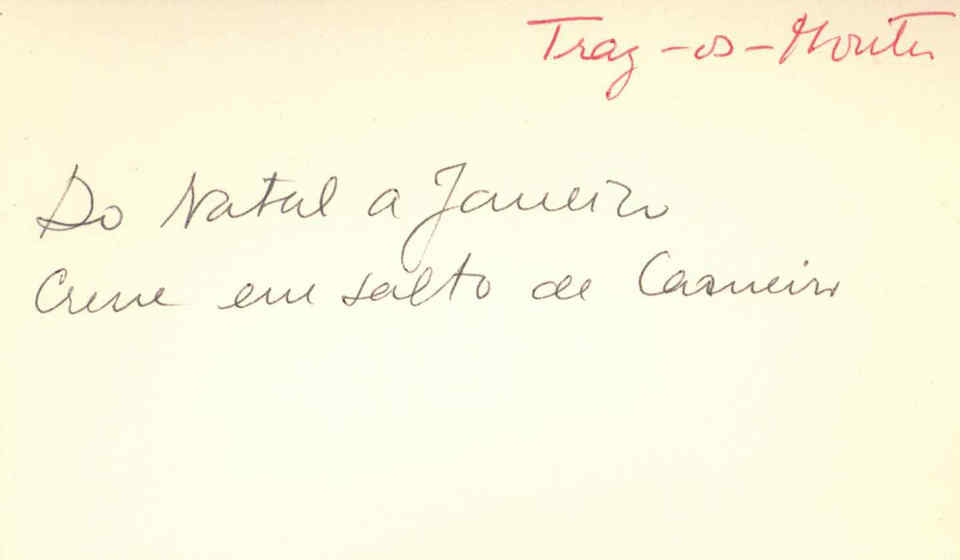 Traz-os-Montes
Do Natal a Janeiro
Cresce em salto de Carneiro